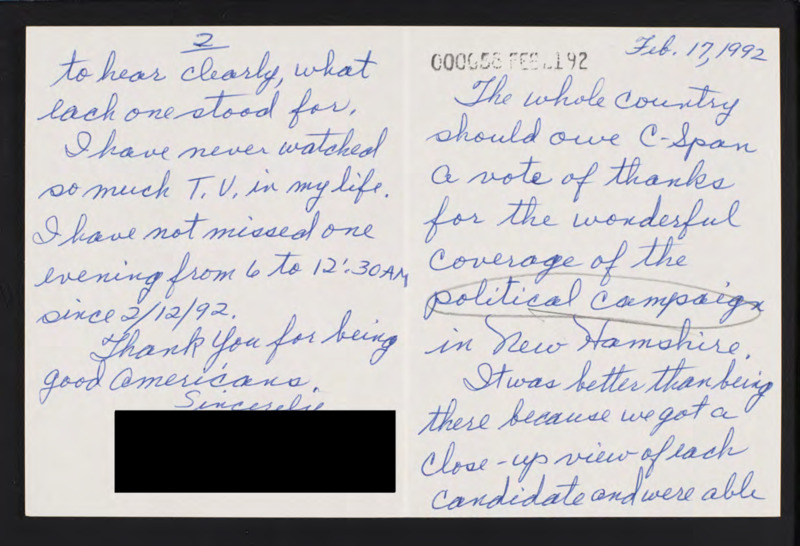 Feb. 17, 1992
FEB 92
The whole country
should owe C-Span
a vote of thanks
for the wonderful
coverage of the
political campaign
in New Hamshire.
It was better than being
there because we got a
close-up view of each
candidate and were able
2
to hear clearly, what
each one stood for.
I have never watched
so much T.V. in my life.
I have not missed one
evening from 6 to 12:30 AM
since 2/12/92.
Thank You for being
good Americans.
Sincerely